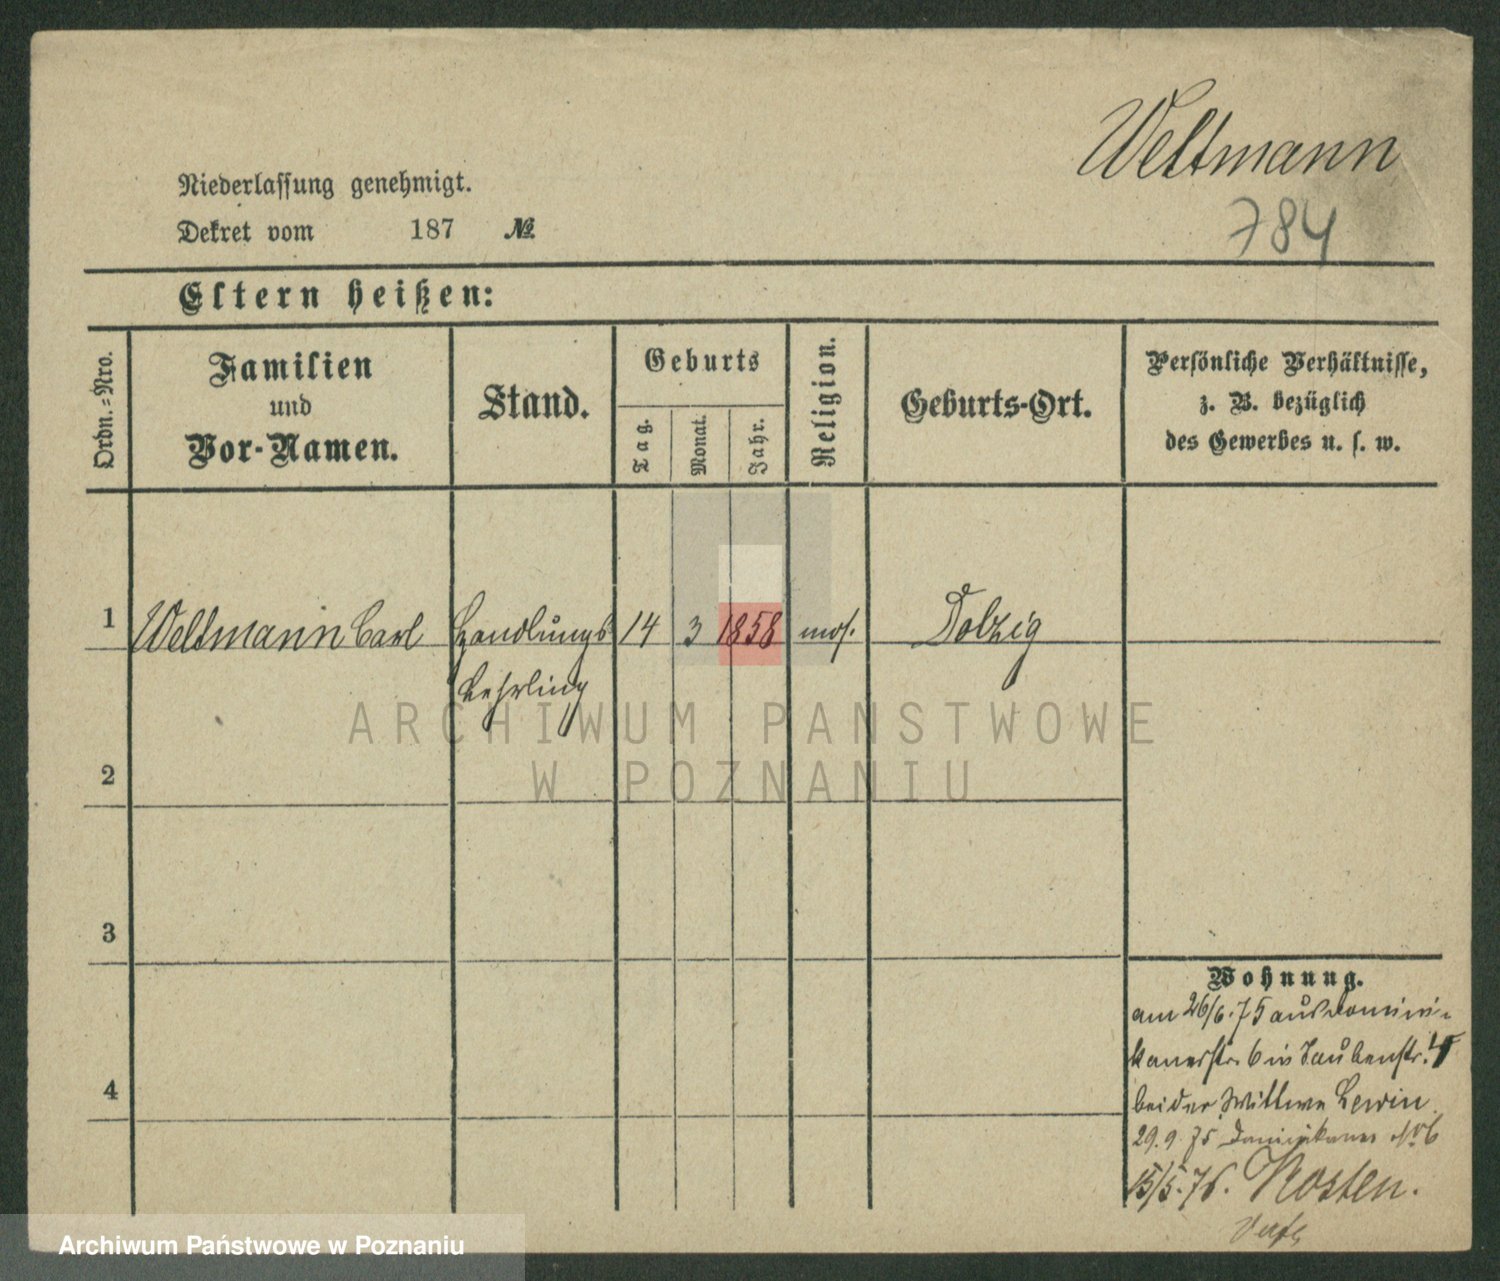 Weltmann
784
Niederlassung genehmigt.
Dekret vom 187 №
Eltern heißen:
Ordn.-Nro.
Familien
und
Vor-Namen.
Stand.
Geburts
Tag.
Monat.
Jahr.
Religion.
Geburts-Ort.
Persönliche Verhältnisse,
z. B. bezüglich
des Gewerbes u. s. w.
1 Weltmann Carl Handlungs 14 3 1858 mos. Dolzig
Lehrling
ARCHIWUM PANSTWOWE
W POZNANIU
2
3
4
Wohnung.
am 26/6.75 aus Domini-
kanerstr. 6 in Taubenstr. 4
bei der Wittwe Lewin
29.9.75 Dominikaner No 6
15/5.76. Kosten.
Archiwum Państwowe w Poznaniu